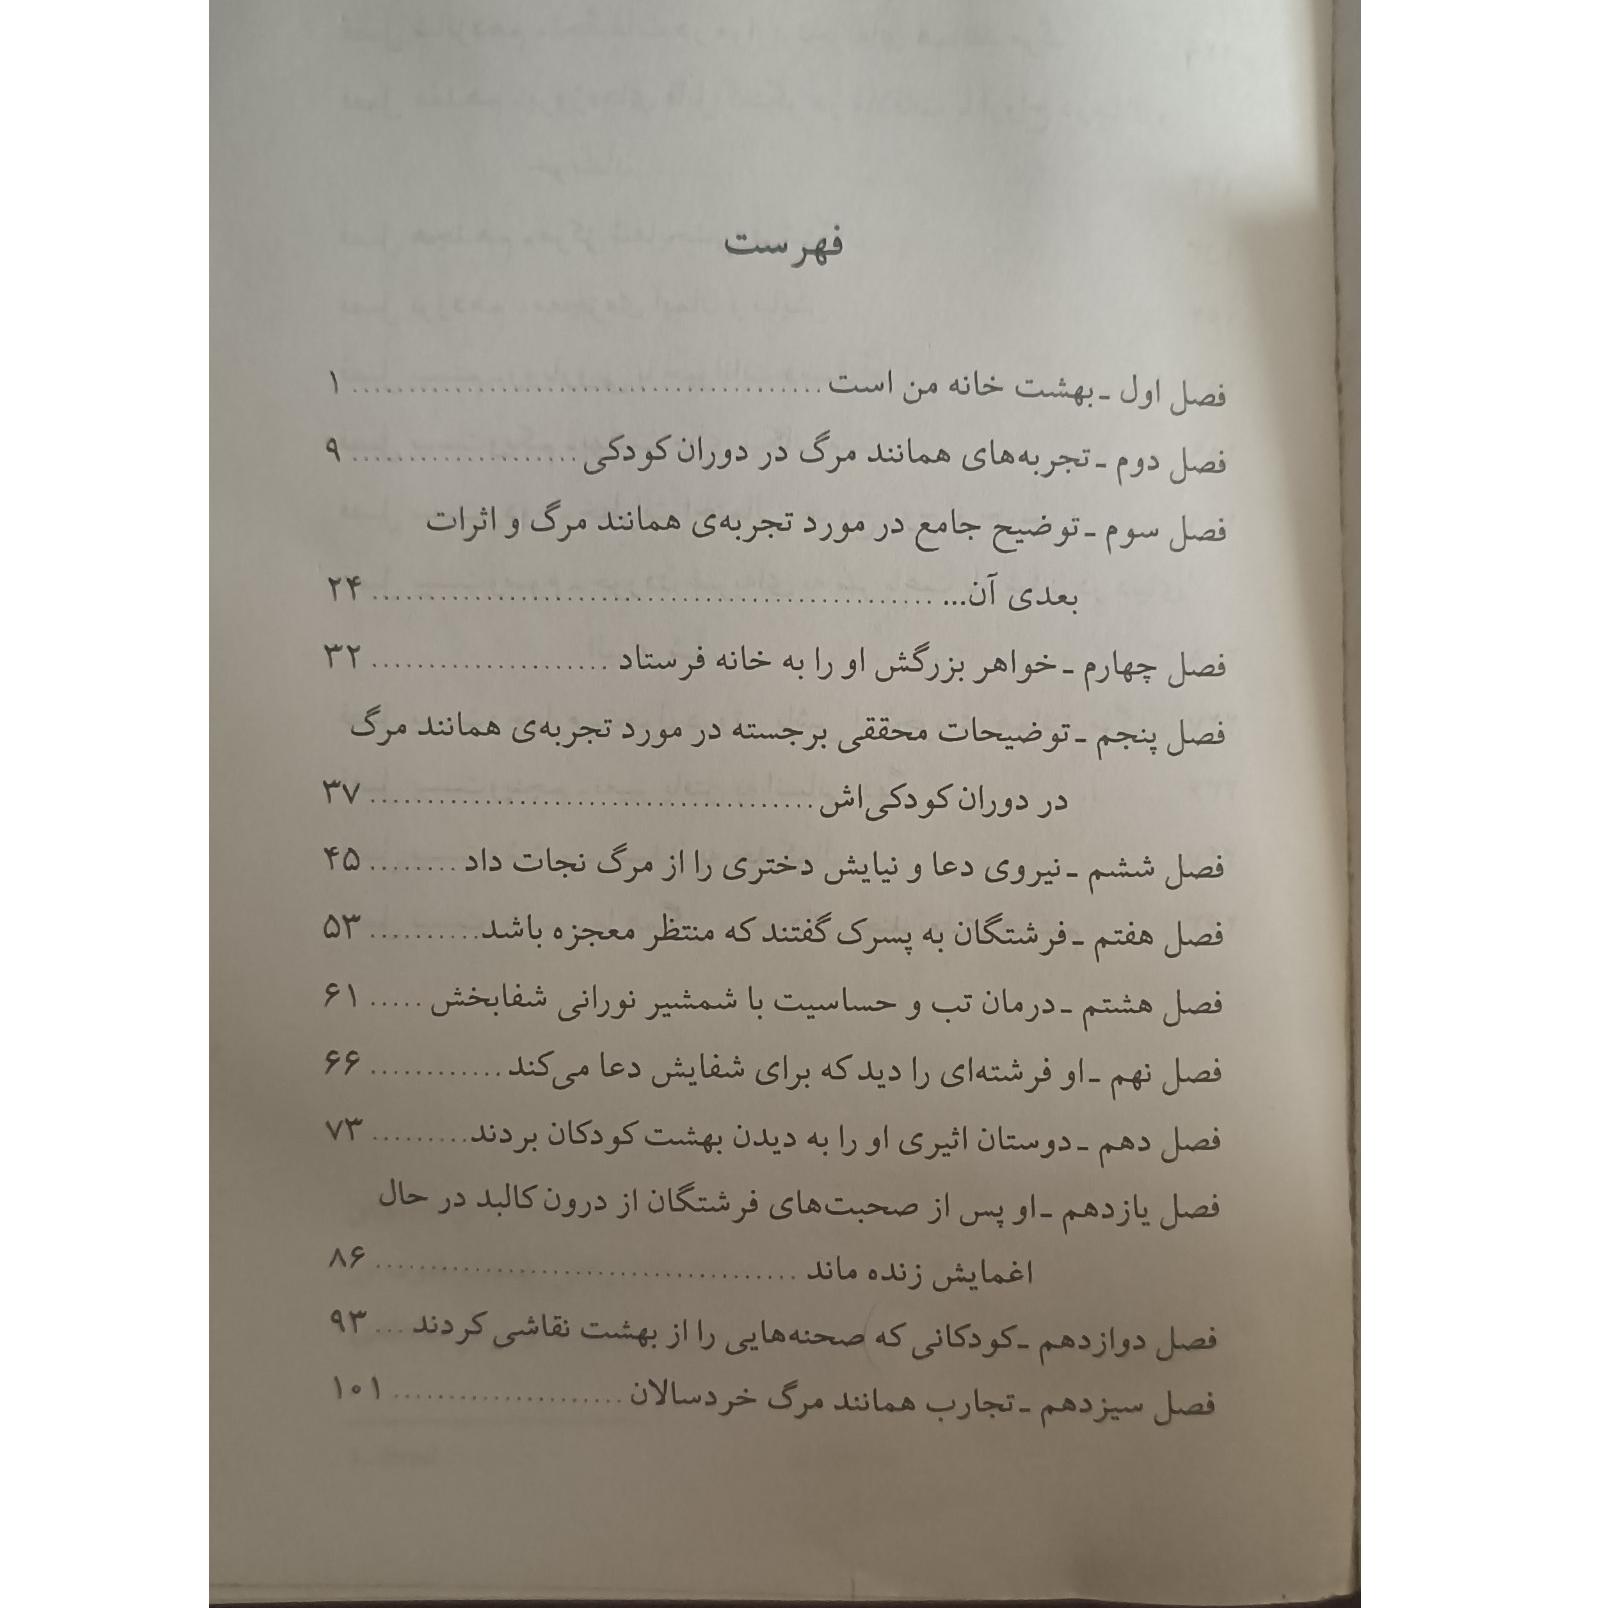 فهرست
فصل اول ـ بهشت خانه من است ........................................ ۱
فصل دوم ـ تجربه‌های همانند مرگ در دوران کودکی .................... ۹
فصل سوم ـ توضیح جامع در مورد تجربه‌ی همانند مرگ و اثرات
بعدی آن... ................................................ ۲۴
فصل چهارم ـ خواهر بزرگش او را به خانه فرستاد ..................... ۳۲
فصل پنجم ـ توضیحات محققی برجسته در مورد تجربه‌ی همانند مرگ
در دوران کودکی‌اش ...................................... ۳۷
فصل ششم ـ نیروی دعا و نیایش دختری را از مرگ نجات داد ........ ۴۵
فصل هفتم ـ فرشتگان به پسرک گفتند که منتظر معجزه باشد .......... ۵۳
فصل هشتم ـ درمان تب و حساسیت با شمشیر نورانی شفابخش ..... ۶۱
فصل نهم ـ او فرشته‌ای را دید که برای شفایش دعا می‌کند ............ ۶۶
فصل دهم ـ دوستان اثیری او را به دیدن بهشت کودکان بردند ......... ۷۳
فصل یازدهم ـ او پس از صحبت‌های فرشتگان از درون کالبد در حال
اغمایش زنده ماند ..................................... ۸۶
فصل دوازدهم ـ کودکانی که صحنه‌هایی را از بهشت نقاشی کردند ... ۹۳
فصل سیزدهم ـ تجارب همانند مرگ خردسالان ..................... ۱۰۱